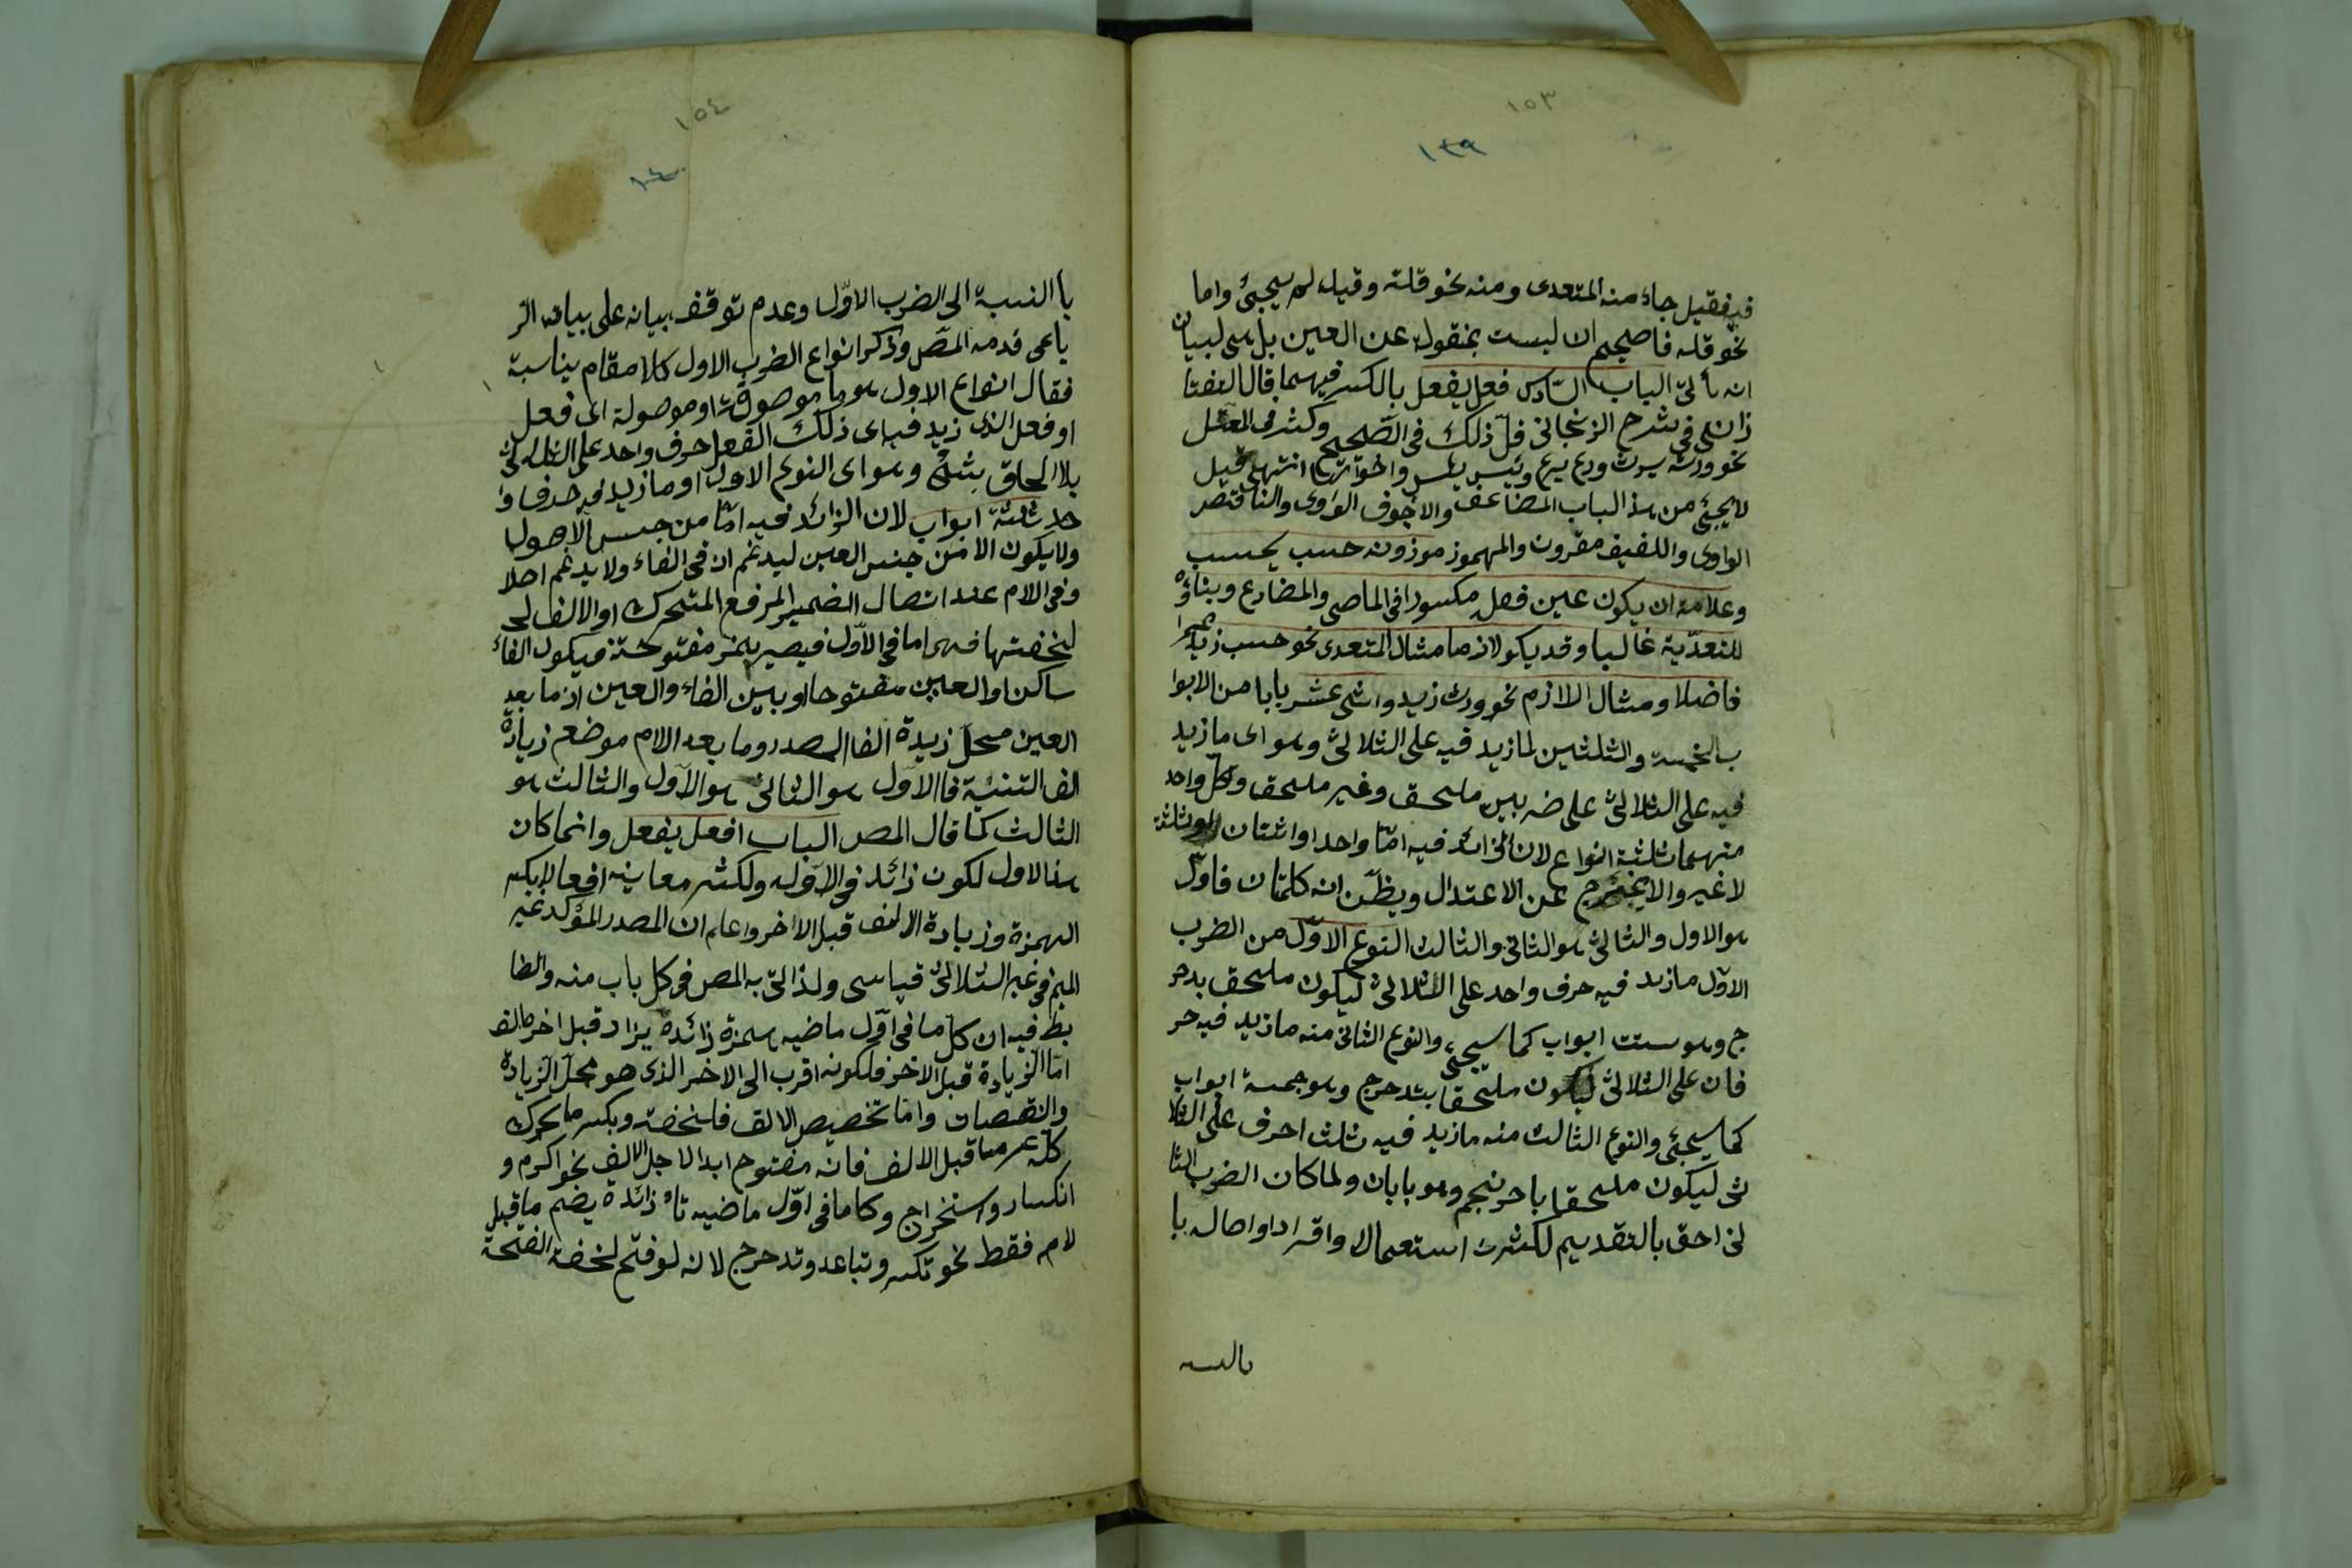 ١٥٣
١٣٩
فيه فقيل جاء منه المتعدى ومنه نحو قلته وقيل لم يجئ واما
نحو قلته فاصحيح ان ليست بمنقولة عن العين بل هى لبيان
انه يأتى الباب السّادس فعل يفعل بالكسر فيهما قال التفتا
زانى فى شرح الزنجانى قلّ ذلك فى الصّحيح وكثر فى المعتل
نحو ورث يرث وورع يرع ويئس ييئس واخواتها انتهى قيل
لا يجئ من هذا الباب المضاعف والاجوف الواوى والناقص
الواوى واللفيف مقرون والمهموز موزونه حسب يحسب
وعلامته ان يكون عين فعله مكسورا فى الماضى والمضارع وبناؤه
للتعدّية غالبا وقد يكو لازما مثال المتعدى نحو حسب زيد عمرا
فاضلا ومثال اللازم نحو ورث زيد واثنى عشر بابا من الابوا
ب الخمسة والثلثين لما زيد فيه على الثلاثىّ وهو اى ما زيد
فيه على الثلاثىّ على ضربين ملحق وغير ملحق وكلّ واحد
منهما ثلثة انواع لان الزائد فيه امّا واحد او اثنان او ثلثة
لا غير والا يخرج عن الاعتدال ويظنّ انه كلمتان فاوّل
هو الاول والثانى هو الثانى والثالث النوع الاوّل من الضرب
الاوّل ما زيد فيه حرف واحد على الثلاثىّ ليكون ملحق بدحر
ج وهو ستت ابواب كما سيجئ والنوع الثانى منه ما زيد فيه حر
فان على الثلاثىّ ليكون ملحقا بتدحرج وهو خمسة ابواب
كما سيجئ والنوع الثالث منه ما زيد فيه ثلث احرف على الثلا
ثى ليكون ملحقا باحرنجم وهو بابان ولما كان الضرب الثا
نى احق بالتقديم لكثرت استعماله واقراد او اصاله با
بالنسبه
١٥٤
١٤٠
با النسبة الى الضرب الاوّل وعدم توقف بيانه على بيانه الر
باعى قدمه المصّ وذكر انواع الضرب الاول كلا مقام يناسبة
فقال انواع الاول هو ما موصوفة او موصولة اى فعل
او فعل الذى زيد فيه اى ذلك الفعل حرف واحد على الثلاثىّ
بلا الحاق بشئ وهو اى النوع الاول او ما زيد فيه حرف وا
حد ثلثة ابواب لان الزائد فيه امّا من جنس الاصول
ولا يكون الا من جنس العين ليدغم ان فى الفاء ولا يدغم اصلا
وفى اللام عند اتصال الضمير المرفوع المتحرك او الالف لى
لخفتها فهى اما فى الاوّل فيصير همز مفتوحة فيكون الفاء
ساكن او العين مفتوحا او بين الفاء والعين اذ ما بعد
العين محلّ زيدة الفا المصدر وما بعد اللام موضع زيادة
الف التثنية فالاوّل هو الثانى هو الاوّل والثالث هو
الثالث كما قال المصّ الباب افعل يفعل وانما كان
هذا الاول لكون زائد فى الاوّل ولكثر معانيه افعالا بكسر
الهمزة وزيادة الالف قبل الاخر واعلم ان المصدر المؤكد غير
الميم فى غير الثلاثىّ قياسى ولذا اتى به المصّ فى كل باب منه والضا
بط فيه ان كلّ ما فى اوّل ماضيه همزة زائدة يزاد قبل اخره الف
امّا الزيادة قبل الاخر فلكونه اقرب الى الاخر الذى هو محلّ الزيادة
والنقصان وامّا تخصيص الالف فلخفته ويكسر ما تحرك
كلّه غير ما قبل الالف فانه مفتوح ابدا لاجل الالف نحو اكرم و
انكسار واستخراج وكلما فى اوّل ماضيه تاء زائدة يضم ما قبل
لامه فقط نحو تكسر وتباعد وتدحرج لانه لو فتح لخفة الفتحة